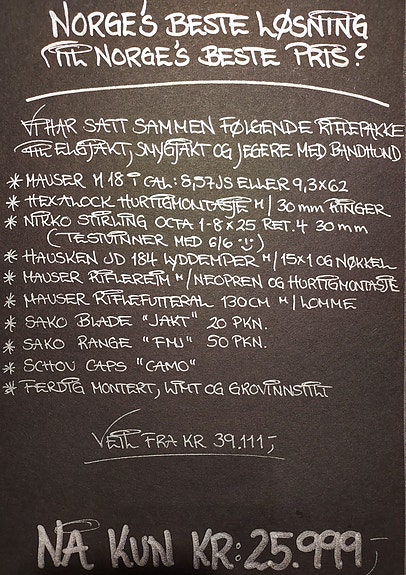 NORGE'S BESTE LØSNING
TIL NORGE'S BESTE PRIS?
VI HAR SATT SAMMEN FØLGENDE RIFLEPAKKE
TIL ELGJAKT, SMYGJAKT OG JEGERE MED BANDHUND
* MAUSER M 18 I CAL: 8,57JS ELLER 9,3x62
* HEXALOCK HURTIGMONTASJE M/ 30 mm RINGER
* NIKKO STIRLING OCTA 1-8x25 RET. 4 30 mm
(TESTVINNER MED 6/6 :-))
* HAUSKEN JD 184 LYDDEMPER M/ 15x1 OG NØKKEL
* MAUSER RIFLEREIM M/ NEOPREN OG HURTIGMONTASJE
* MAUSER RIFLEFUTTERAL 130CM M/ LOMME
* SAKO BLADE "JAKT" 20 PKN.
* SAKO RANGE "FMJ" 50 PKN.
* SCHOU CAPS "CAMO"
* FERDIG MONTERT, LIMT OG GROVINNSTILT
VEIL FRA KR 39.111,-
NÅ KUN KR: 25.999,-